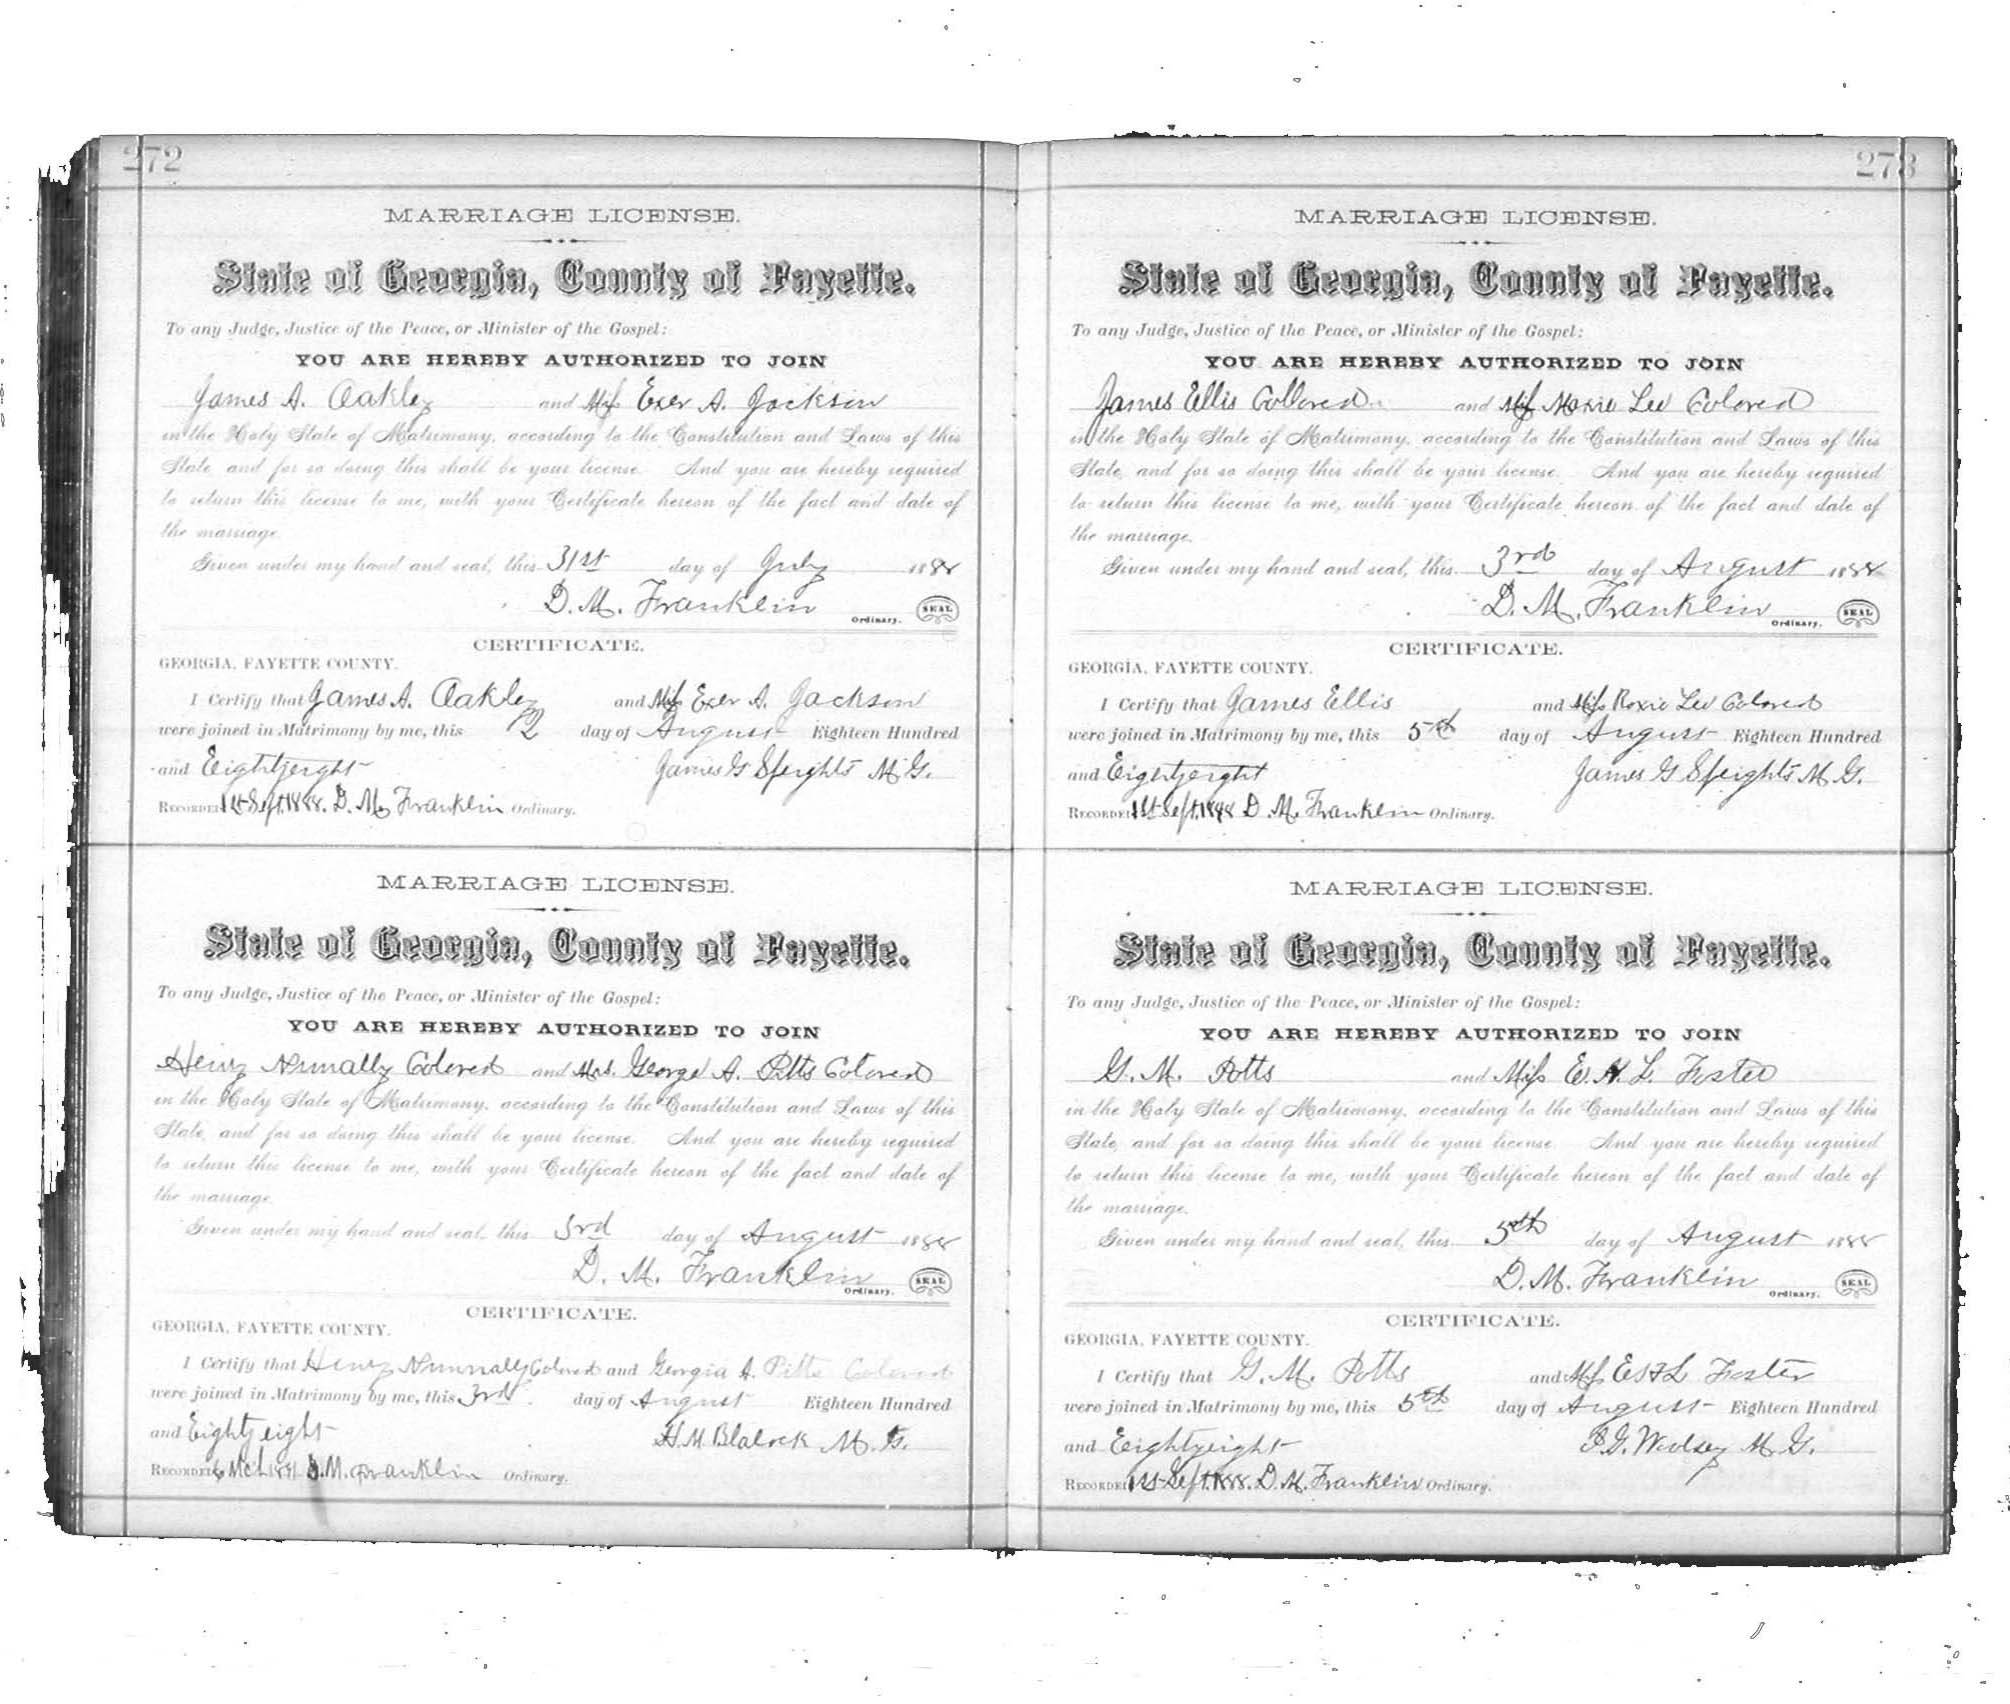 272
MARRIAGE LICENSE.
State of Georgia, County of Fayette.
To any Judge, Justice of the Peace, or Minister of the Gospel:
YOU ARE HEREBY AUTHORIZED TO JOIN
James A. Oakley and Miss Exer A. Jackson
in the Holy State of Matrimony, according to the Constitution and Laws of this
State, and for so doing this shall be your license. And you are hereby required
to return this license to me, with your Certificate hereon of the fact and date of
the marriage.
Given under my hand and seal, this 31st day of July 1888
D. M. Franklin
Ordinary. SEAL
CERTIFICATE.
GEORGIA, FAYETTE COUNTY.
I Certify that James A. Oakley and Miss Exer A. Jackson
were joined in Matrimony by me, this 2 day of August Eighteen Hundred
and Eightyeight James G Speights M.G.
RECORDED 1st Sept. 1888. D. M. Franklin Ordinary.
MARRIAGE LICENSE.
State of Georgia, County of Fayette.
To any Judge, Justice of the Peace, or Minister of the Gospel:
YOU ARE HEREBY AUTHORIZED TO JOIN
Henry Nunnally Colored and Mrs. George A. Pitts Colored
in the Holy State of Matrimony, according to the Constitution and Laws of this
State, and for so doing this shall be your license. And you are hereby required
to return this license to me, with your Certificate hereon of the fact and date of
the marriage.
Given under my hand and seal, this 3rd day of August 1888
D. M. Franklin
Ordinary. SEAL
CERTIFICATE.
GEORGIA, FAYETTE COUNTY.
I Certify that Henry Nunnally Colored and Georgia A. Pitts Colored
were joined in Matrimony by me, this 3rd day of August Eighteen Hundred
and Eighty eight H. M. Blalock M. G.
RECORDED 6 Mch 1891 D. M. Franklin Ordinary.
273
MARRIAGE LICENSE.
State of Georgia, County of Fayette.
To any Judge, Justice of the Peace, or Minister of the Gospel:
YOU ARE HEREBY AUTHORIZED TO JOIN
James Ellis Collored and Miss Roxie Lee Colored
in the Holy State of Matrimony, according to the Constitution and Laws of this
State, and for so doing this shall be your license. And you are hereby required
to return this license to me, with your Certificate hereon of the fact and date of
the marriage.
Given under my hand and seal, this 3rd day of August 1888
D. M. Franklin
Ordinary. SEAL
CERTIFICATE.
GEORGIA, FAYETTE COUNTY.
I Certify that James Ellis and Miss Roxie Lee Colored
were joined in Matrimony by me, this 5th day of August Eighteen Hundred
and Eightyeight James G Speights M. G.
RECORDED 1st Sept. 1888 D. M. Franklin Ordinary.
MARRIAGE LICENSE.
State of Georgia, County of Fayette.
To any Judge, Justice of the Peace, or Minister of the Gospel:
YOU ARE HEREBY AUTHORIZED TO JOIN
G. M. Potts and Miss E. H. L. Foster
in the Holy State of Matrimony, according to the Constitution and Laws of this
State, and for so doing this shall be your license. And you are hereby required
to return this license to me, with your Certificate hereon of the fact and date of
the marriage.
Given under my hand and seal, this 5th day of August 1888
D. M. Franklin
Ordinary. SEAL
CERTIFICATE.
GEORGIA, FAYETTE COUNTY.
I Certify that G. M. Potts and Miss Foster
were joined in Matrimony by me, this 5th day of August Eighteen Hundred
and Eightyeight M. G.
RECORDED 1st Sept. 1888. D. M. Franklin Ordinary.